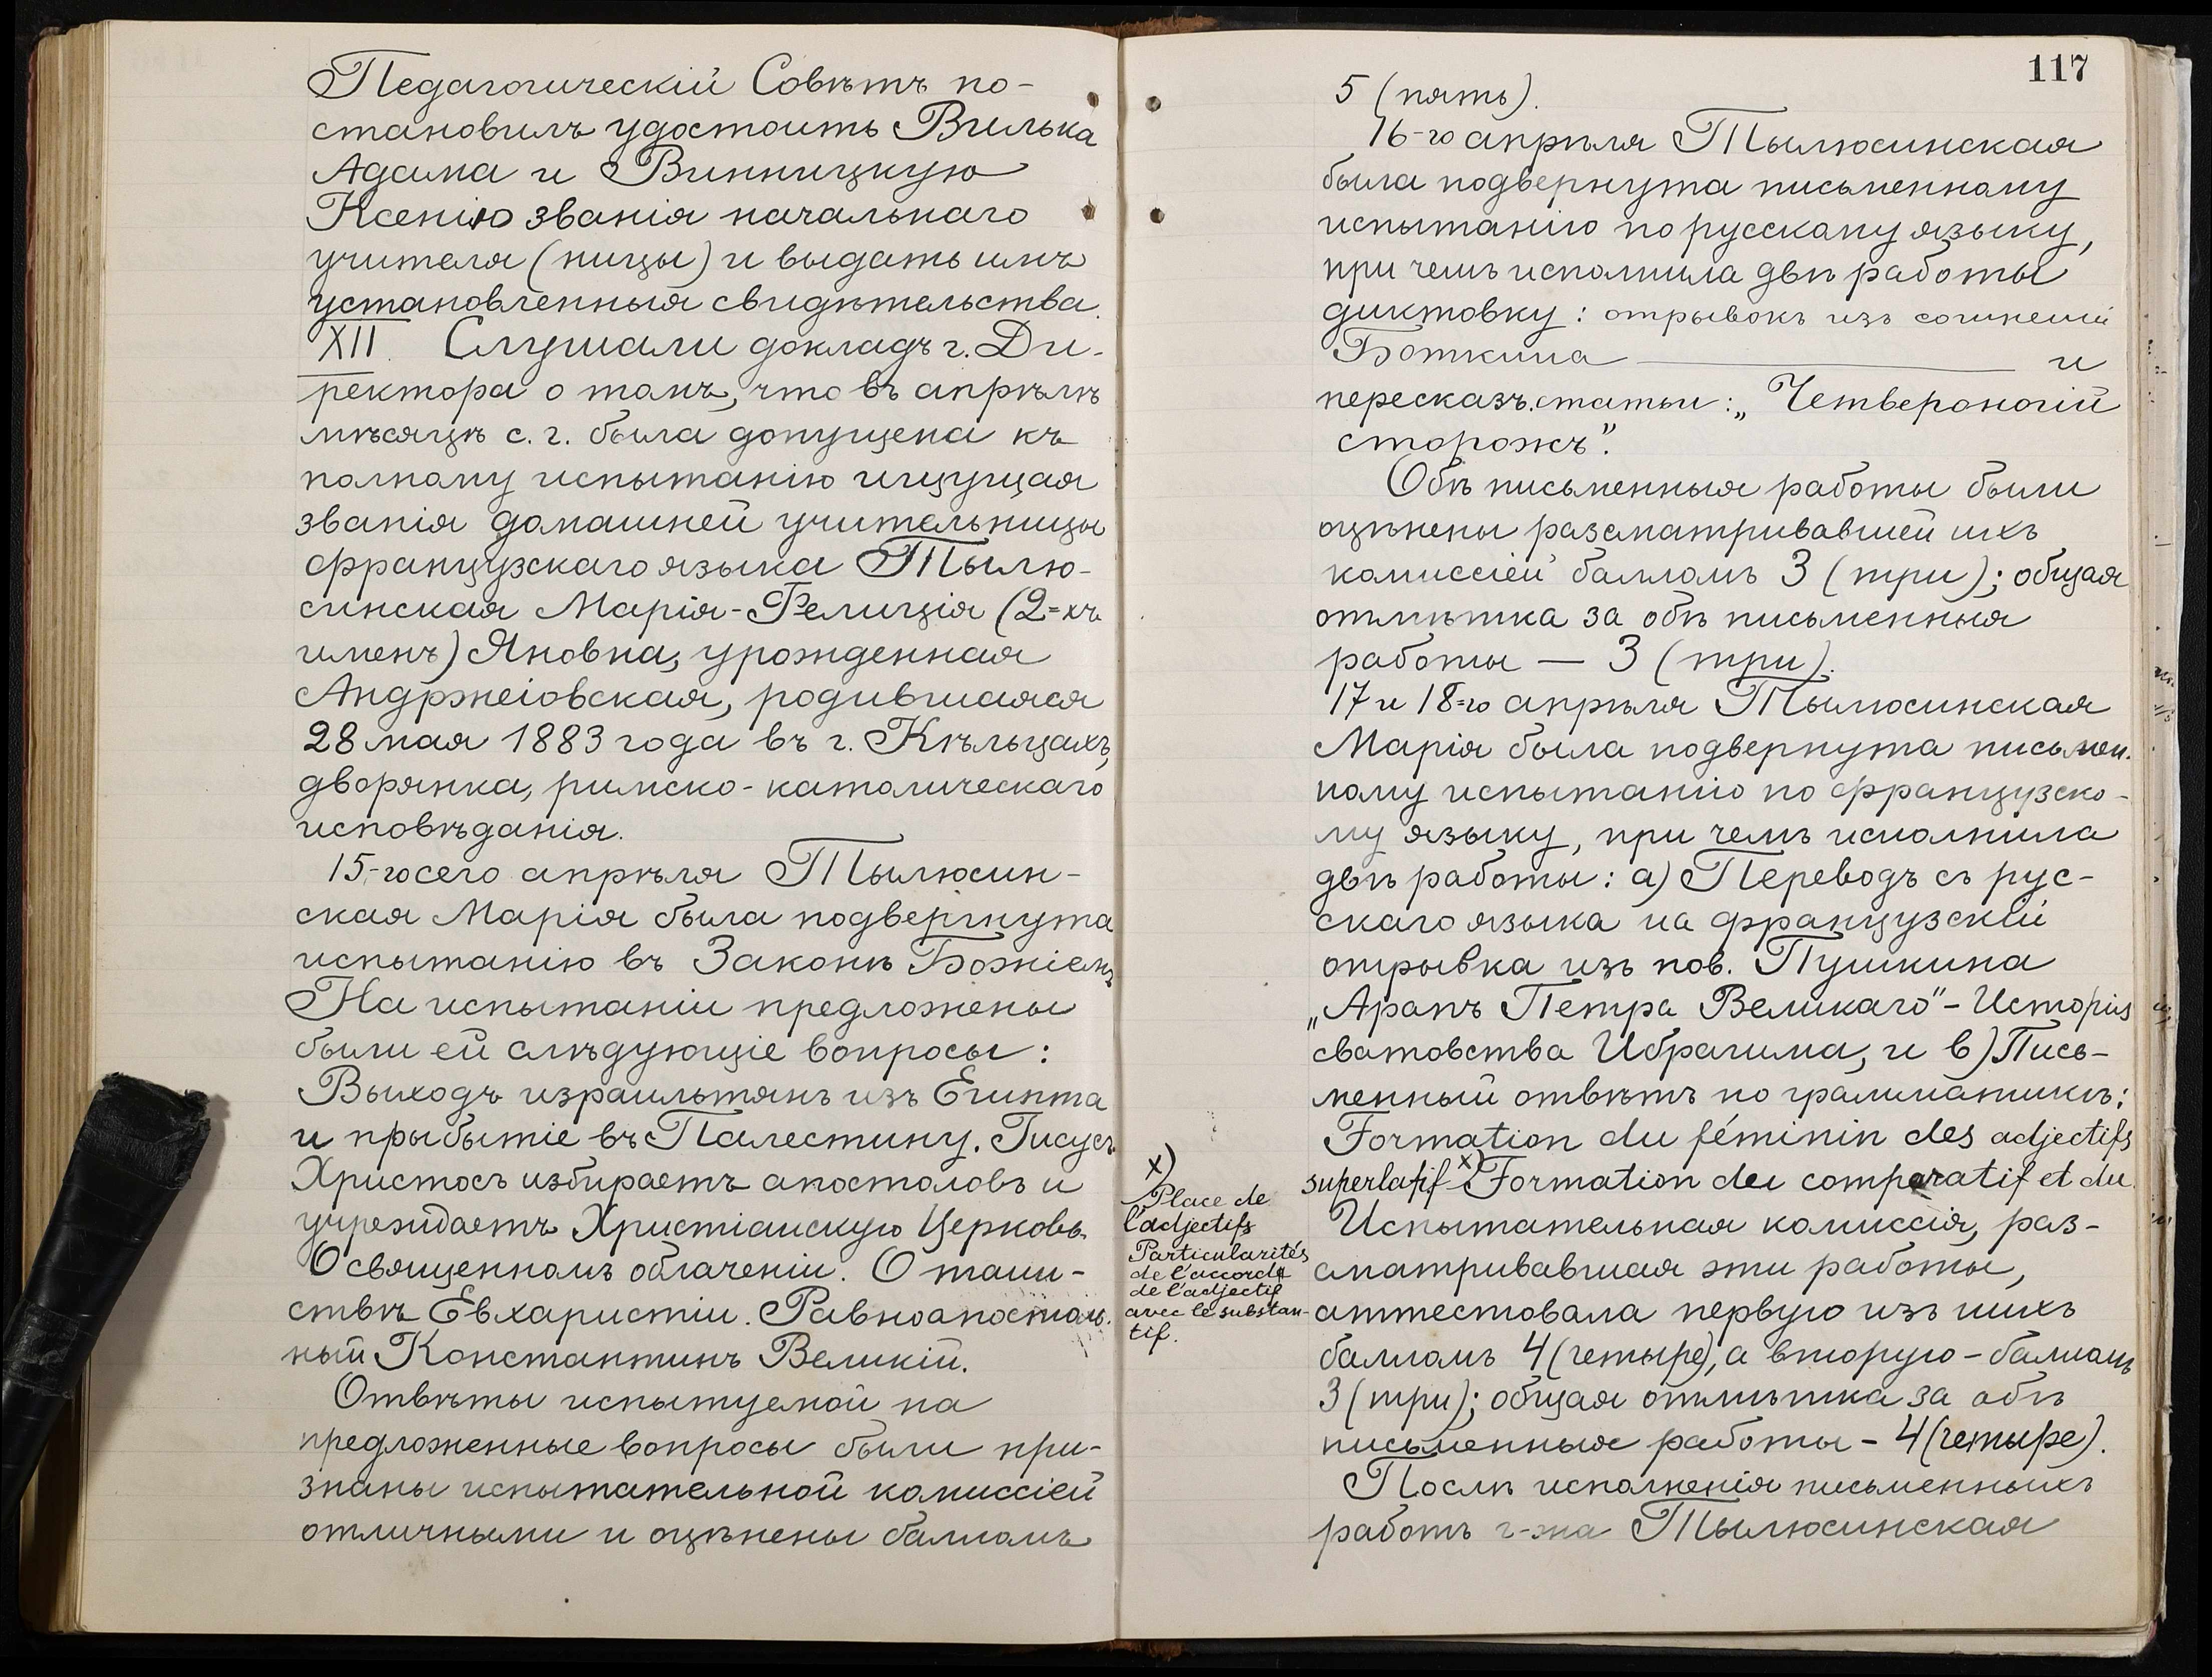 Педагогическій Совѣтъ по-
становилъ удостоить Вилька
Адама и Винницкую
Ксенію званія начальнаго
учителя (ницы) и выдать имъ
установленныя свидѣтельства.
XII. Слушали докладъ г. Ди-
ректора о томъ, что въ апрѣлѣ
мѣсяцѣ с. г. была допущена къ
полному испытанію ищущая
званія домашней учительницы
французскаго языка Тылю-
синская Марія-Фелиція (2=хъ
именъ) Яновна, урожденная
Андржеіовская, родившаяся
28 мая 1883 года въ г. Кѣльцахъ,
дворянка, римско-католическаго
исповѣданія.
15-го сего апрѣля Тылюсин-
ская Марія была подвергнута
испытанію въ Законѣ Божіемъ
На испытаніи предложены
были ей слѣдующіе вопросы:
Выходъ израильтянъ изъ Египта
и прыбытіе въ Палестину. Іисусъ
Христосъ избираетъ апостоловъ и
учреждаетъ Христіанскую Церковь.
О священномъ облаченіи. О таин-
ствѣ Евхаристіи. Равноапостоль-
ный Константинъ Великій.
Отвѣты испытуемой на
предложенные вопросы были при-
знаны испытательной комиссіей
отличными и оцѣнены балломъ
117
5 (пять).
16-го апрѣля Тылюсинская
была подвергнута письменному
испытанію по русскому языку,
при чемъ исполнила двѣ работы
диктовку: отрывокъ изъ сочиненій
Боткина — и
пересказъ статьи: „Четвероногій
сторожъ".
Обѣ письменныя работы были
оцѣнены разсматривавшей ихъ
комиссіей балломъ 3 (три); общая
отмѣтка за обѣ письменныя
работы — 3 (три).
17 и 18=го апрѣля Тылюсинская
Марія была подвергнута письмен-
ному испытанію по французско-
му языку, при чемъ исполнила
двѣ работы: а) Переводъ съ рус-
скаго языка на французскій
отрывка изъ пов. Пушкина
„Арапъ Петра Великаго" - Исторія
сватовства Ибрагима, и в) Пись-
менный отвѣтъ по грамматикѣ:
Formation du féminin des adjectifs
superlatif x) Formation du comparatif et du
x)
Place de
l'adjectifs
Particularités
de l'accorde
de l'adjectif
avec le substan-
tif.
Испытательная комиссія, раз-
сматривавшая эти работы,
аттестовала первую изъ нихъ
балломъ 4 (четыре), а вторую - балломъ
3 (три); общая отмѣтка за обѣ
письменныя работы - 4 (четыре).
Послѣ исполненія письменныхъ
работъ г-жа Тылюсинская